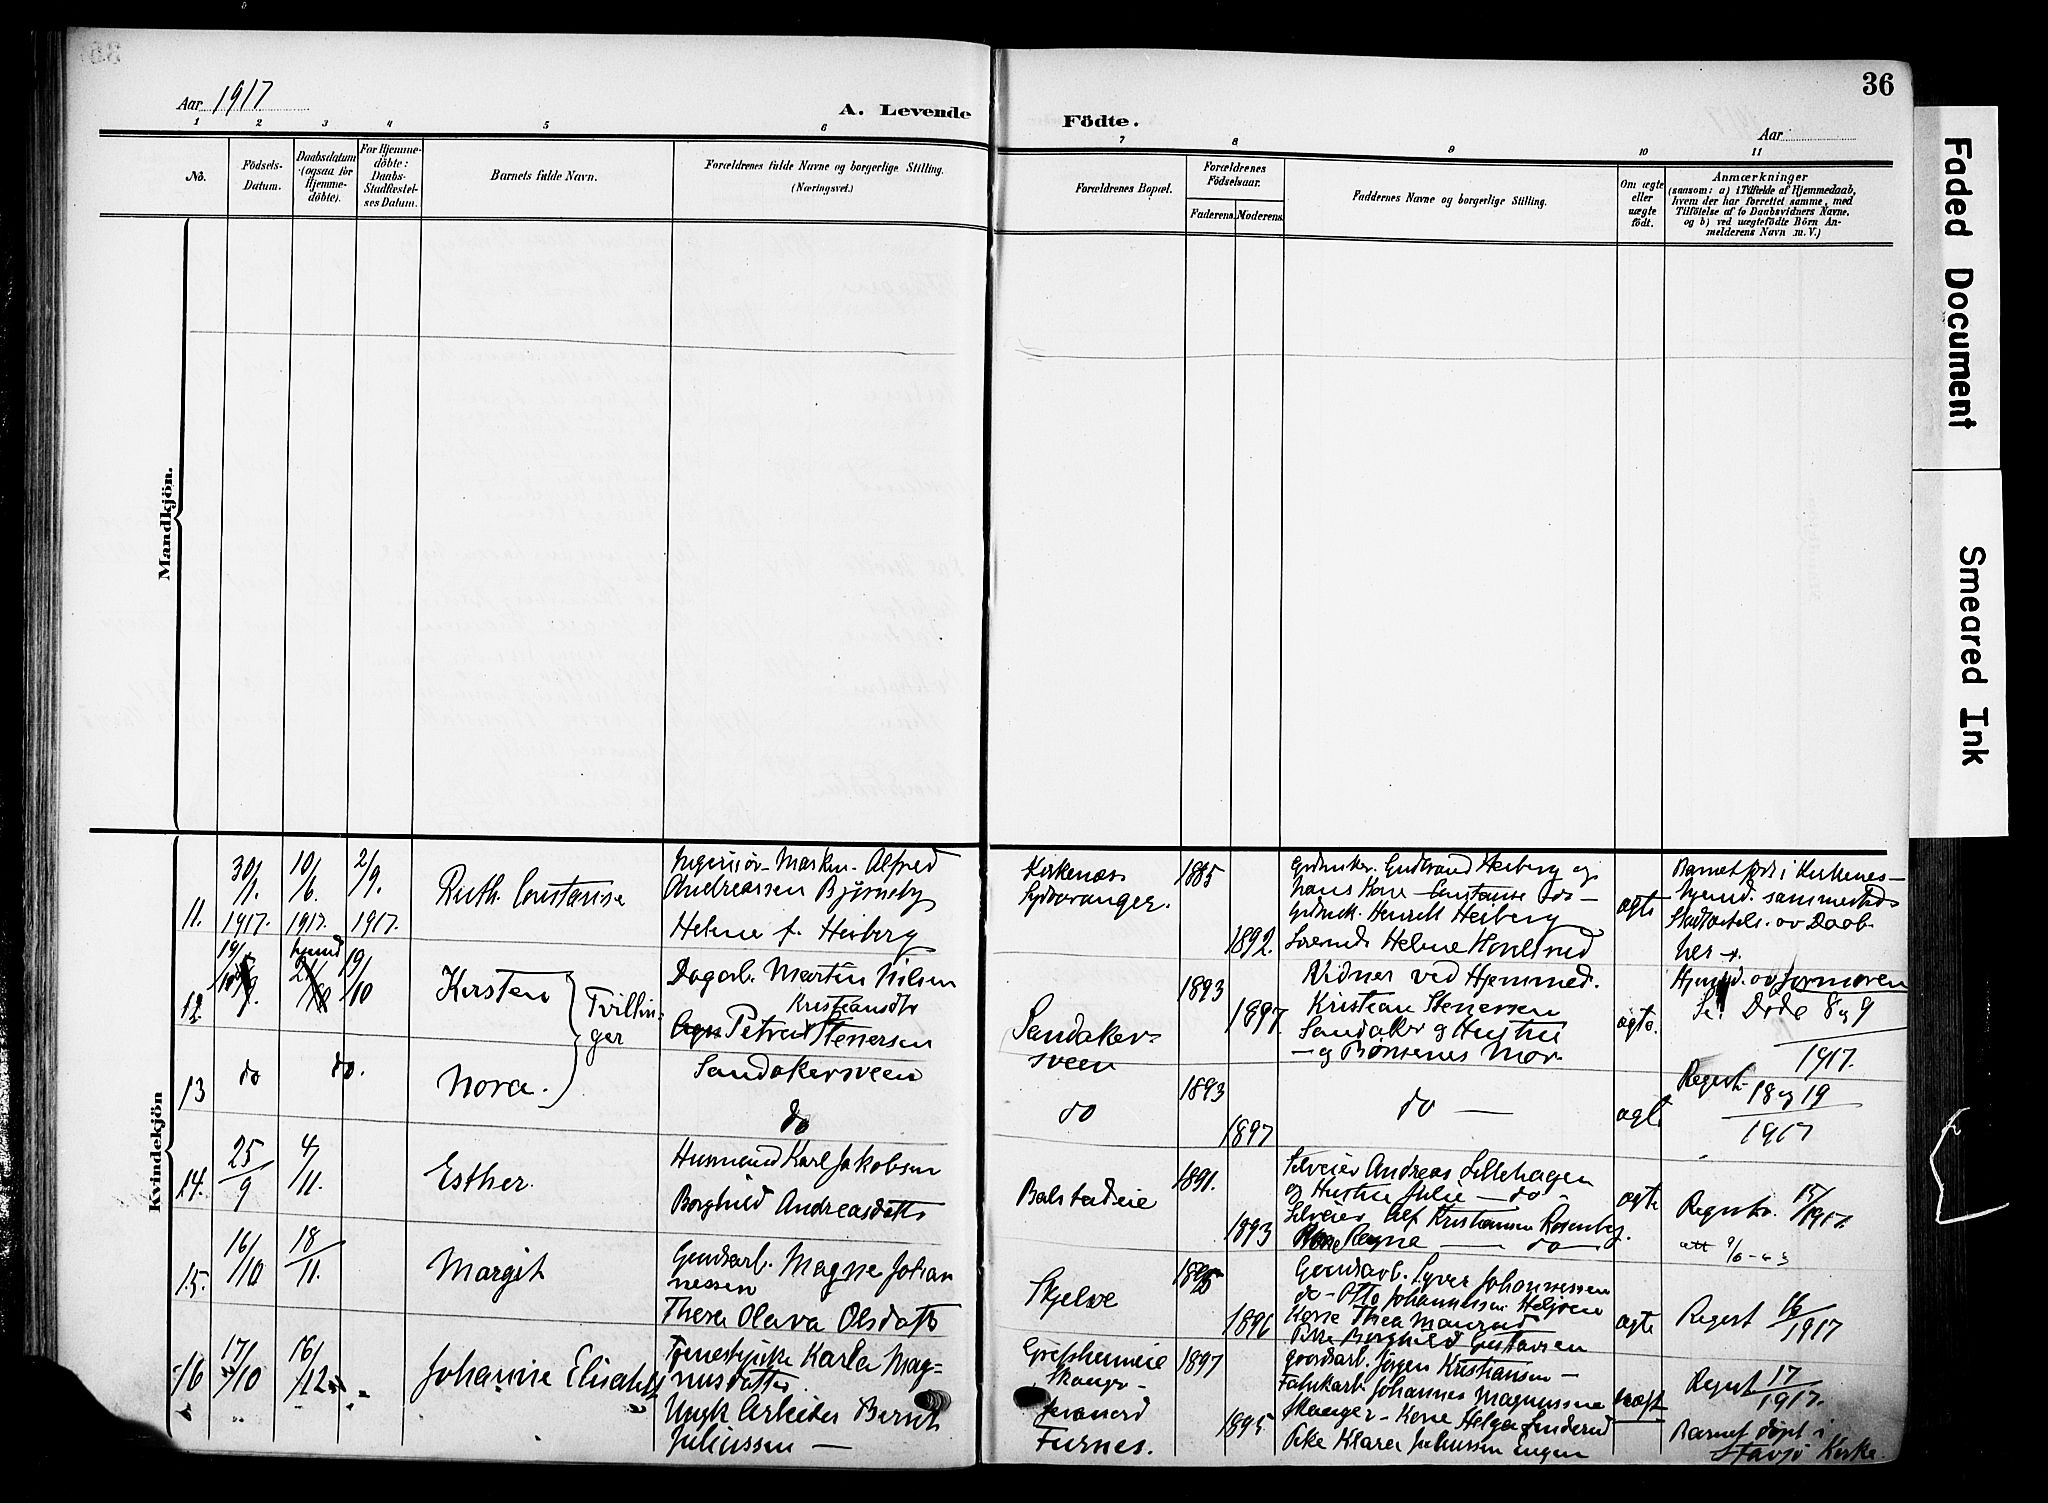 36
Aar 1917
A. Levende
Födte.
Aar
1 2 3 4 5 6 7 8 9 10 11
No.
Födsels-
Datum.
Daabsdatum
(ogsaa for
Hjemme-
döbte).
For Hjemme-
döbte:
Daabs-
Stadfæstel-
ses Datum.
Barnets fulde Navn.
Forældrenes fulde Navne og borgerlige Stilling.
(Næringsvei.)
Forældrenes Bopæl.
Forældrenes
Födselsaar.
Faderens.
Moderens.
Faddernes Navne og borgerlige Stilling.
Om ægte
eller
uægte
födt.
Anmærkninger
(sansom: a) i Tilfælde af Hjemmedaab,
hvem der har forrettet samme, med
Tilföielse af to Daabsvidners Navne,
og b) ved uægtefödte Börn An-
melderens Navn m. V.)
Mandkjön.
Kvindekjön
11.
30/1.
1917.
10/6
1917.
2/9.
1917.
Ruth Constanse
Ingeniör Alfred
Andreassen Bjørneby
Helene f. Heiberg
Kirkenæs
Sydvaranger.
1885
1892.
Gudbrand Heiberg og
Constanse do -
Henrik Heiberg
Helene
ægte
Barnet født i Kirkenes -
hjemd. sammesteds
Stadfæstels. ov Daab
her
12
19/10
Kirsten
Tvillin-
ger
Dagarb. Martin Nilsen
Kristiansdtr
Petra Stenersen
Sandakersveen
Sandaker-
sveen
1893
1897.
Vidner ved Hjemmed.
Kristian Stenersen
Sandaker og Hustru
og Børnenes Mor.
ægte.
Hjemd. ov Jormoren
Se Døde 8 og 9
1917.
13
do
do.
Nora.
do
do
1893
1897
do
ægte
Regest. 18 og 19
1917
14.
25/9
4/11.
Esther.
Husmand Karl Jakobsen
Borghild Andreasdatter
Balstadeie
1891.
1893
Selveier Andreas Lillehagen
og Hustru Julie - do
Selveier Alf Kristiansen Rosenberg.
do
ægte
Regestr. 15/1917.
15.
16/10
18/11.
Margit
Gaardsarb. Magne Johan
nessen
Thea Olava Olsdatter
Skjelve
1896
Gaardsarb. Syver Johannessen
do - Otto Johannessen
Kone Thea
Pike Borghild Gustavsen
ægte
Regest 16/1917
16
17/10
16/12
Johanne Elisabeth
Tjenestepike Karla Mag-
nusdatter.
Ungk Arbeider Bernt
Juliussen -
Grefsheimeie
Furnes.
1897
1895
Gaardsarb. Jørgen Kristiansen -
Fabrikarb Johannes Magnussen
Kone Helga
Pike Klara Juliussen Engen
uægt
Regest 17/1917.
Barnet døpt i
Stavsjö Kirke.
Faded Document
Smeared Ink